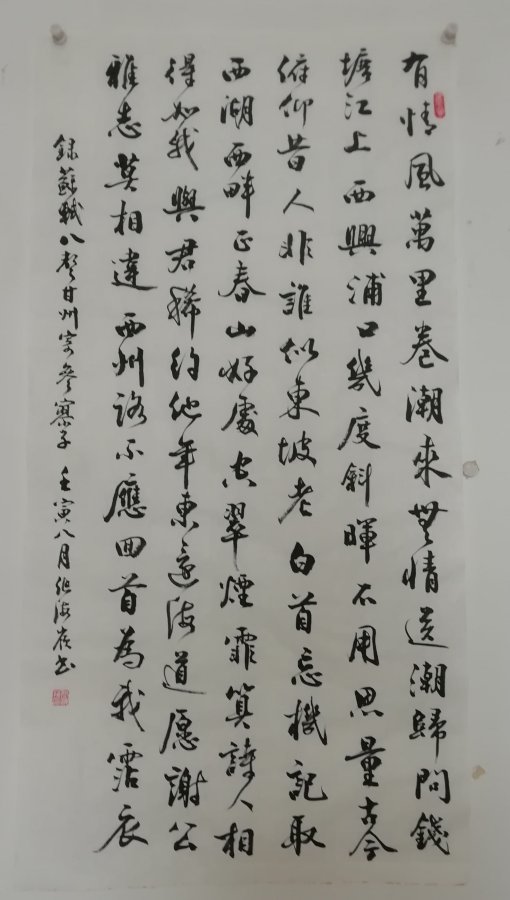 有情風萬里卷潮來無情送潮歸問錢
塘江上西興浦口幾度斜暉不用思量古今
俯仰昔人非誰似東坡老白首忘機記取
西湖西畔正春山好處空翠煙霏算詩人相
得如我與君稀約他年東還海道愿謝公
雅志莫相違西州路不應回首為我霑衣
錄蘇軾八聲甘州寄參寥子 壬寅八月 海 書